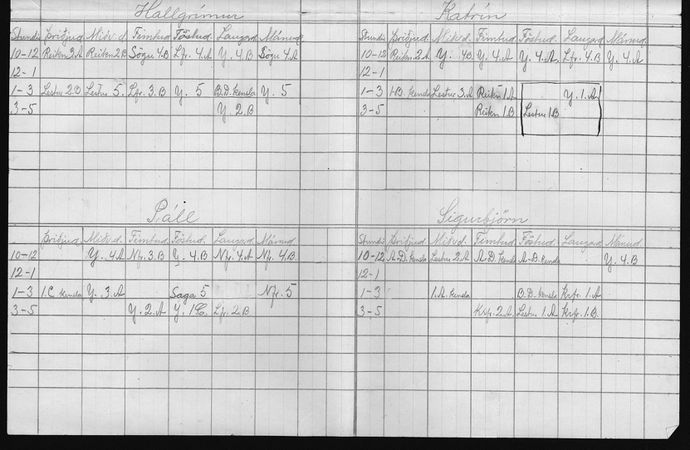 Hallgrímur
Stundir Þriðjud. Miðv.d. Fimtud. Föstud. Laugard. Mánud.
10-12 Reikn 2.A Reikn 2.B Sögu 4.B Lfr. 4.A Y. 4.B Sögu 4.A
12-1
1-3 Lestur 2.B Lestur 5. Lfr. 3.B Y. 5 B.D. kensla Y. 5
3-5 Y. 2.B
Katrín
Stundir Þriðjud. Mikvd. Fimtud. Föstud. Laugard. Mánud.
10-12 Reikn. 2.A Y. 4B. Y. 4.A Y. 4.A. Lfr. 4.B Y. 4.A
12-1
1-3 1B. kensla Lestur 3.A Reikn 1.A Y. 1.A
3-5 Reikn 1.B Lestur 1.B
Páll
Þriðjud. Mikv.d. Fimtud. Föstud. Laugard. Mánud.
10-12 Y. 4.A Nfr. 3.B Y. 4.B Nfr. 4.A Nfr. 4.B
12-1
1-3 1.C kensla Y. 3.A Saga 5 Nfr. 5
3-5 Y. 2.A Y. 1C. Lfr. 2.B
Sigurbjörn
Stundir Þriðjud. Mikv.d. Fimtud. Föstud. Laugard. Mánud.
10-12 A.D. kensla Lestur 2.A A.D. kensla A-B. kensla Y. 4.B
12-1
1-3 1.A. kensla B.D. kensla Krfr. 1.A
3-5 Krfr. 2.A Lestur 1.A Krfr. 1.B.